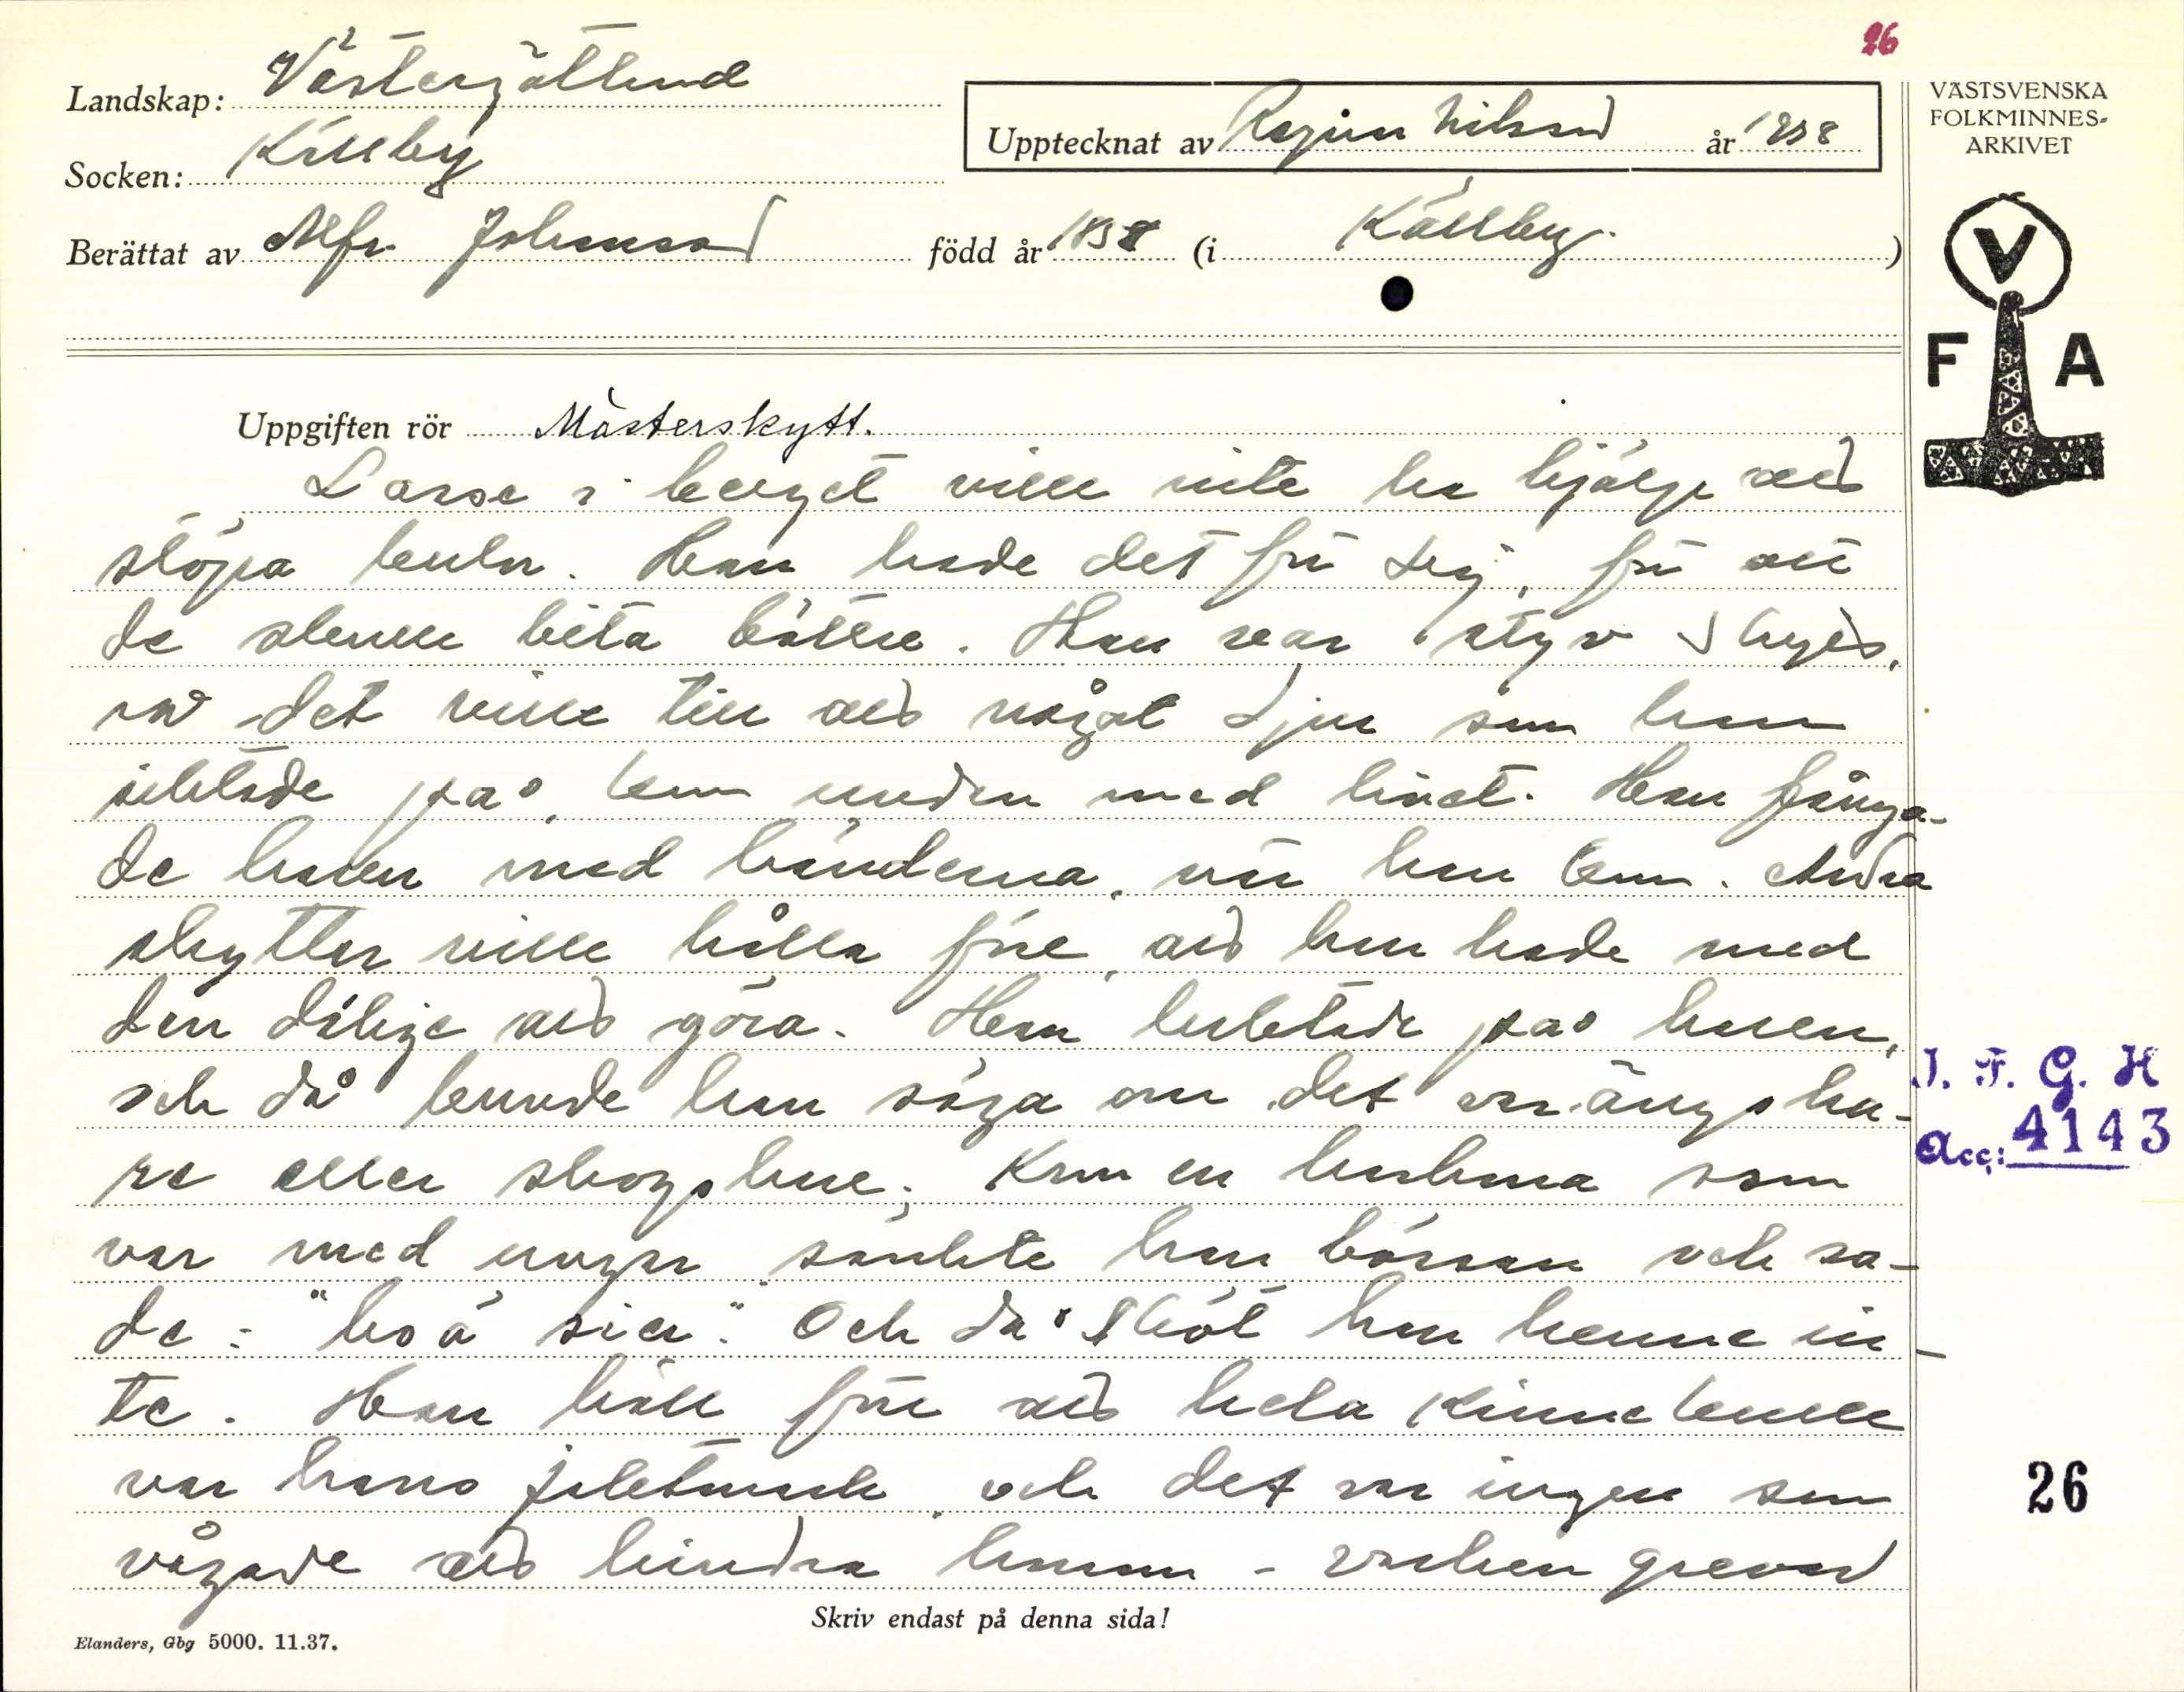 26
Landskap: Västergötland
Socken: Källby
Upptecknat av Ragnar Nilsson år 1938
Berättat av Alfr. Johansson född år 1858 (i Källby.)
VÄSTSVENSKA
FOLKMINNES-
ARKIVET
V
F A
Uppgiften rör Mästerskytt.
Lasse i berget ville inte ha hjälp med
stöpa kulor. Han hade det för sig, för att
de skulle bita bättre. Han var styv skytt,
det ville till att något djur som han
siktade på, kom undan med livet. Han fånga-
de haren med händerna, när han kom. Andra
skyttar ville hålla före, att han hade med
den dålige att göra. Han luktade på haren,
och då kunde han säga om det var ängsha-
re eller skogshare. Kom en harhona som
var med ungar sänkte han bössan och sa-
de: "hoa sia". Och då sköt han henne in-
te. Han höll före att hela Kinnekulle
var hans jaktmark, och det var ingen som
vågade att hindra honom - varken greven
J. F. G. H
Acc: 4143
26
Skriv endast på denna sida!
Elanders, Gbg 5000. 11.37.